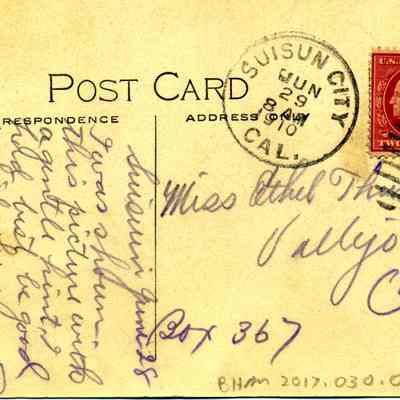 POST CARD
RESPONDENCE
ADDRESS ONLY
SUISUN CITY
JUN
29
8 AM
1910
CAL.
U.S.
TWO
Suisun June 28
I was shown
this picture with
a gentle hint, I
had best be good
Miss Ethel Th
Vallejo
C
Box 367
BHM 2017.030.0